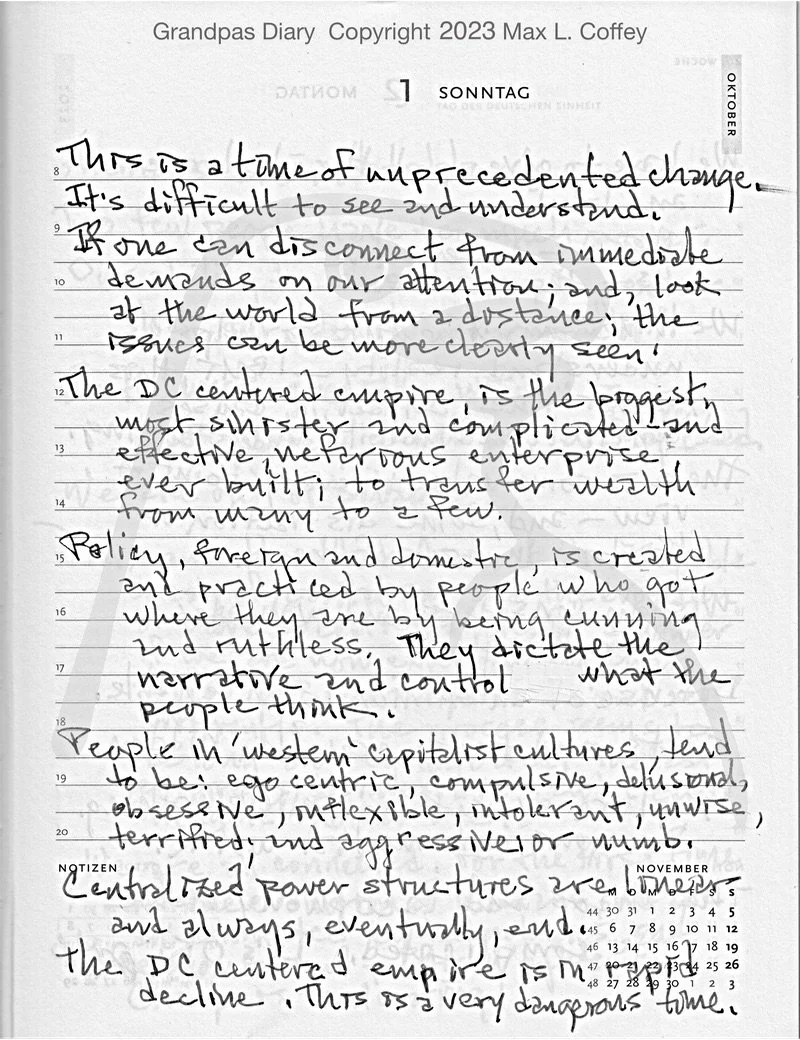 Grandpas Diary Copyright 2023 Max L. Coffey
1 SONNTAG
OKTOBER
8 This is a time of unprecedented change.
It's difficult to see and understand.
9 If one can disconnect from immediate
10 demands on our attention; and, look
at the world from a distance; the
11 issues can be more clearly seen.
12 The DC centered empire, is the biggest,
most sinister and complicated - and
13 effective, nefarious enterprise
ever built; to transfer wealth
14 from many to a few.
15 Policy, foreign and domestic, is created
and practiced by people who got
16 where they are by being cunning
and ruthless. They dictate the
17 narrative and control what the
18 people think.
People in 'western' capitalist cultures, tend
19 to be: ego centric, compulsive, delusional,
obsessive, inflexible, intolerant, unwise,
20 terrified; and aggressive or numb.
NOTIZEN NOVEMBER
Centralized power structures are linear
M D M D F S S
and always, eventually, end.
44 30 31 1 2 3 4 5
45 6 7 8 9 10 11 12
46 13 14 15 16 17 18 19
The DC centered empire is in rapid
47 20 21 22 23 24 25 26
decline. This is a very dangerous time.
48 27 28 29 30 1 2 3